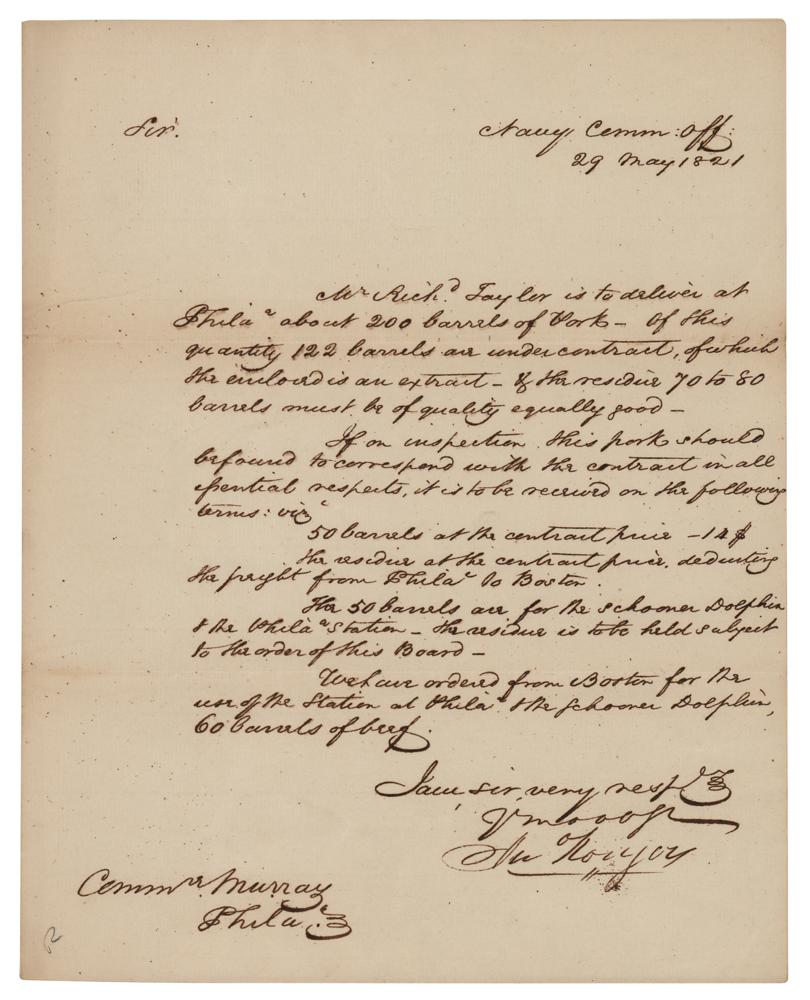 Sir.
Navy Comm: Off:
29 May 1821
Mr Richd. Taylor is to deliver at
Phila. about 200 barrels of Pork – Of this
quantity 122 barrels are under contract, of which
the enclosed is an extract – & the residue 70 to 80
barrels must be of quality equally good –
If on inspection this pork should
be found to correspond with the contract in all
essential respects, it is to be received on the following
terms: viz
50 barrels at the contract price – 14 $
the residue at the contract price, deducting
the freight from Phila. to Boston.
The 50 barrels are for the schooner Dolphin
& the Phila. Station – the residue is to be held subject
to the order of this Board –
We have ordered from Boston for the
use of the Station at Phila. & the schooner Dolphin,
60 barrels of beef.
I am, sir, very respy
Yr mo o ost
Jn Rodgers
Commre. Murray
Phila.